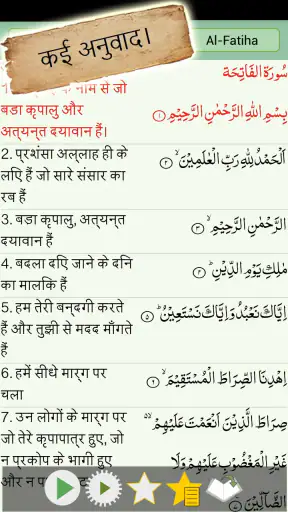 कई अनुवाद।
Al-Fatiha
سُورَة الفَاتِحَة
के नाम से जो
बडा कृपालु और
अत्यन्त दयावान हैं।
بِسْمِ اللهِ الرَّحْمٰنِ الرَّحِيْمِ ١
2. प्रशंसा अल्लाह ही के
लिए हैं जो सारे संसार का
रब हैं
اَلْحَمْدُ لِلّٰهِ رَبِّ الْعٰلَمِيْنَ ۙ ٢
3. बडा कृपालु, अत्यन्त
दयावान हैं
الرَّحْمٰنِ الرَّحِيْمِ ۙ ٣
4. बदला दिए जाने के दिन
का मालिक हैं
مٰلِكِ يَوْمِ الدِّيْنِ ؕ ٤
5. हम तेरी बन्दगी करते
हैं और तुझी से मदद माँगते
हैं
اِيَّاكَ نَعْبُدُ وَاِيَّاكَ نَسْتَعِيْنُ ؕ ٥
6. हमें सीधे मार्ग पर
चला
اِهْدِنَا الصِّرَاطَ الْمُسْتَقِيْمَ ۙ ٦
7. उन लोगों के मार्ग पर
जो तेरे कृपापात्र हुए, जो
न प्रकोप के भागी हुए
और न प
صِرَاطَ الَّذِيْنَ اَنْعَمْتَ عَلَيْهِمْ ۙ
غَيْرِ الْمَغْضُوْبِ عَلَيْهِمْ وَلَا
الضَّآلِّيْنَ